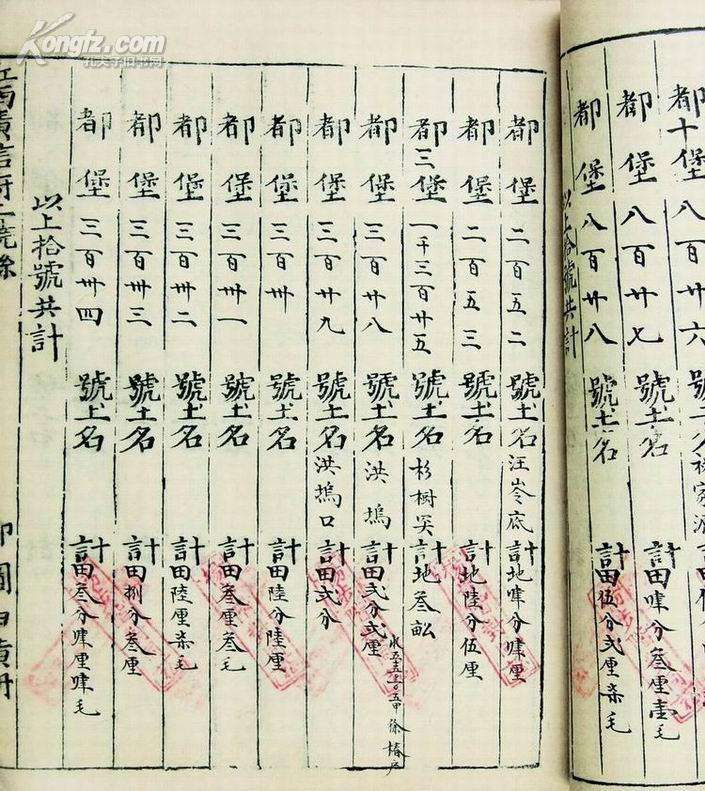 都十堡八百廿六號土名
都堡八百廿七號土名計田肆分叁厘壹毛
都堡八百廿八號土名計田伍分弍厘柒毛
以上拾號共計
都堡二百五二號土名汪岺底計地肆分肆厘
都堡二百五三號土名計地陸分伍厘
都三堡一千三百廿五號土名杉樹計地叁畝
都堡三百廿八號土名洪塢計田弍分弍厘
都堡三百廿九號土名洪塢口計田弍分
都堡三百卅號土名計田陸分陸厘
都堡三百卅一號土名計田叁厘叁毛
都堡三百卅二號土名計田陸厘柒毛
都堡三百卅三號土名計田捌分叁厘
都堡三百卅四號土名計田叁分肆厘肆毛
以上拾號共計
Kongfz.com
孔夫子旧书网